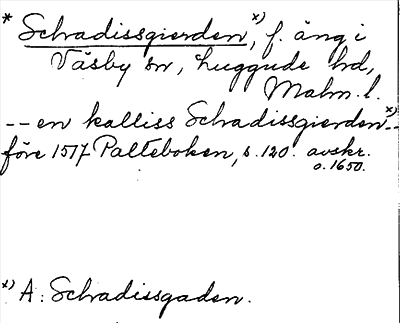 * Schradissgierden x), f. äng i
Väsby sn, Luggude hd,
Malm. l.
-- en kalliss Schradissgierden x)--
före 1517 Palteboken, s. 120. avskr.
o. 1650.
x) A: Schradissgaden.